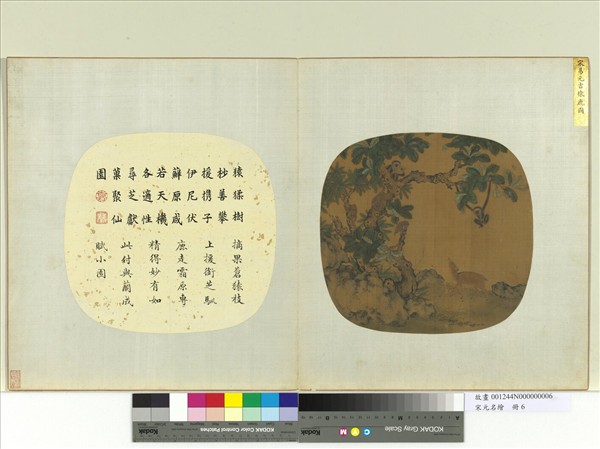 宋易元吉猿鹿圖
猿猱樹
杪善攀
援携子
伊尼伏
蘇原咸
若天機
各適性
尋芝獻
菓聚仙
圖
摘果蒼猿枝
上援銜芝馴
鹿走霜原專
精得妙有如
此付與蘭成
賦小園
Kodak
KODAK Color Control Patches
Kodak
KODAK Gray Scale
C Y M
故畫 001244N000000006
宋元名繪 冊 6